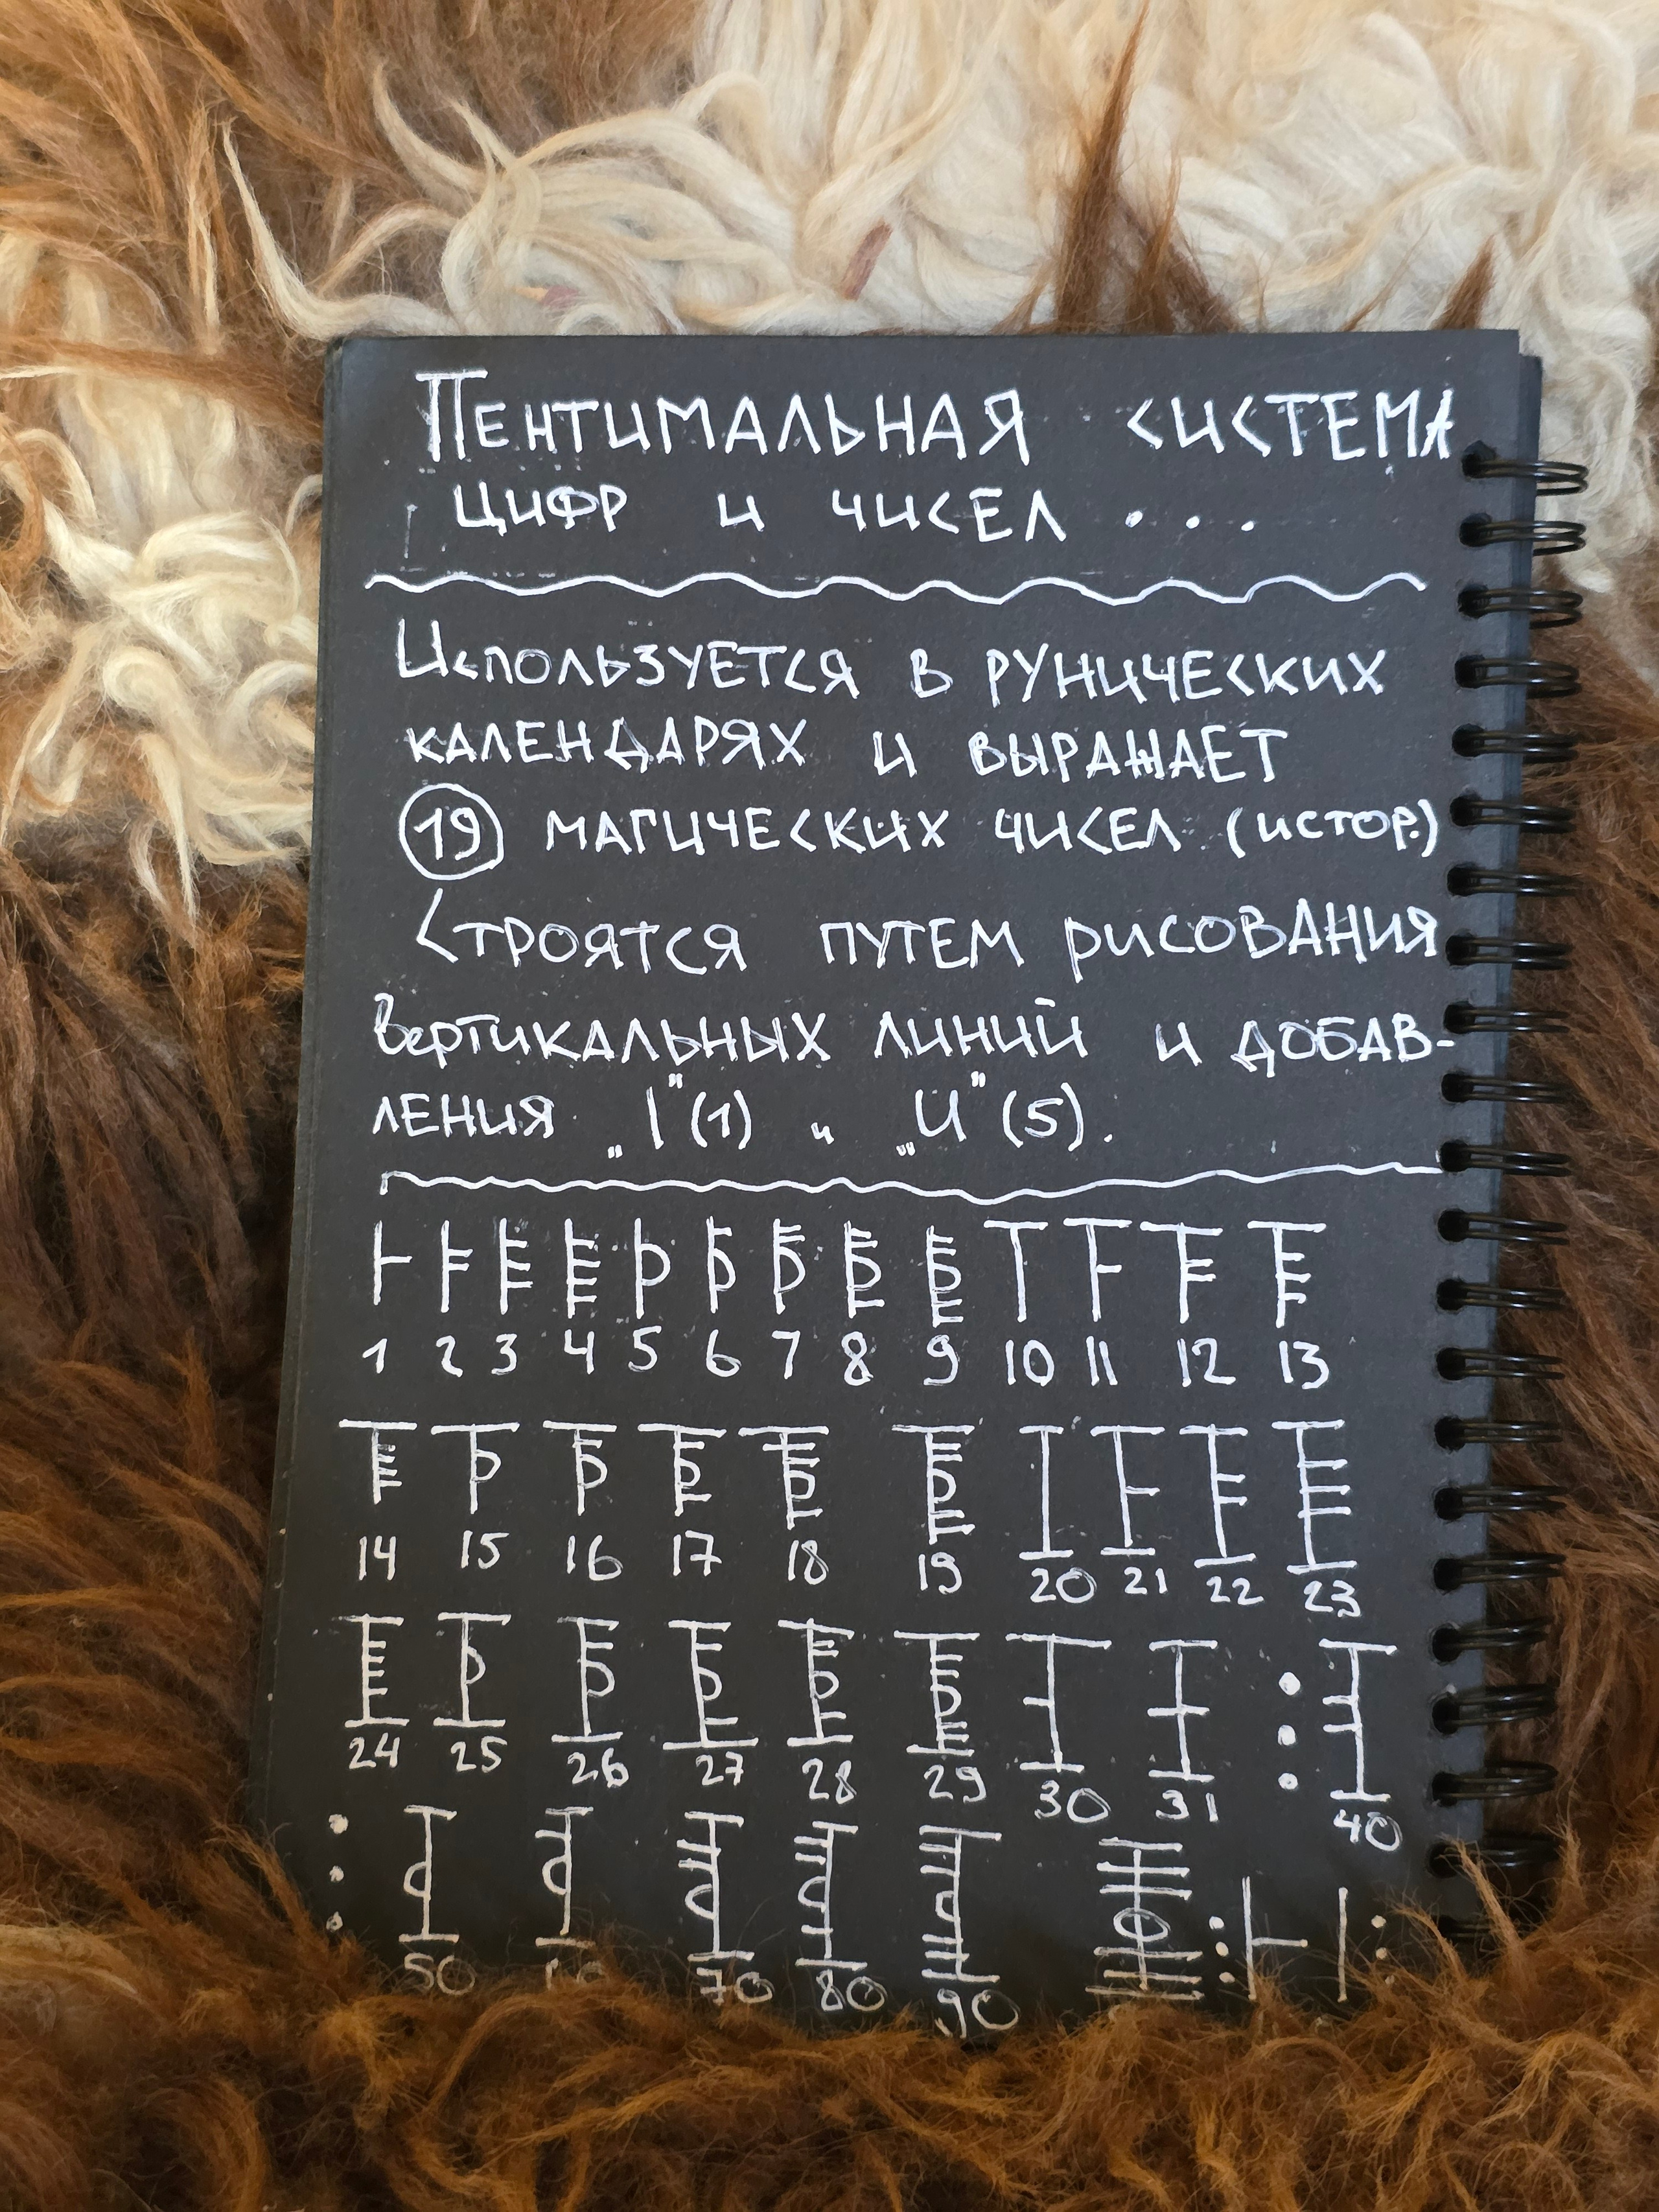 Пентимальная система
цифр и чисел ...
Используется в рунических
календарях и выражает
19 магических чисел (истор.)
Строятся путем рисования
вертикальных линий и добав-
ления „I" (1) и „U" (5).
1 2 3 4 5 6 7 8 9 10 11 12 13
14 15 16 17 18 19 20 21 22 23
24 25 26 27 28 29 30 31 40
50 70 80 90